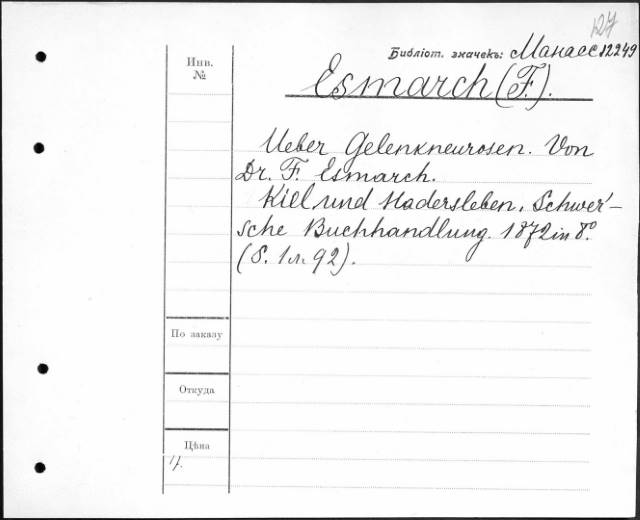 127
Библіот. значекъ: Манаес 12249
Инв.
№
Esmarch (F.).
Ueber Gelenkneurosen. Von
Dr. F. Esmarch.
Kiel und Hadersleben, Schwer'-
sche Buchhandlung. 1872 in 8°.
(S. 1 л. 92).
По заказу
Откуда
Цѣна